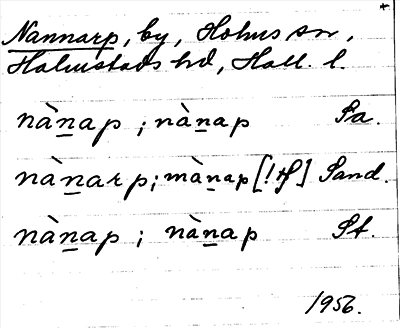 Nannarp, by, Holms sn,
Halmstads hd, Hall. l.
nàn̲ap ; nàn̲ap Sa.
nàn̲arp; màn̲ap [! ] Sand.
nàn̲ap ; nàn̲ap St.
1956.